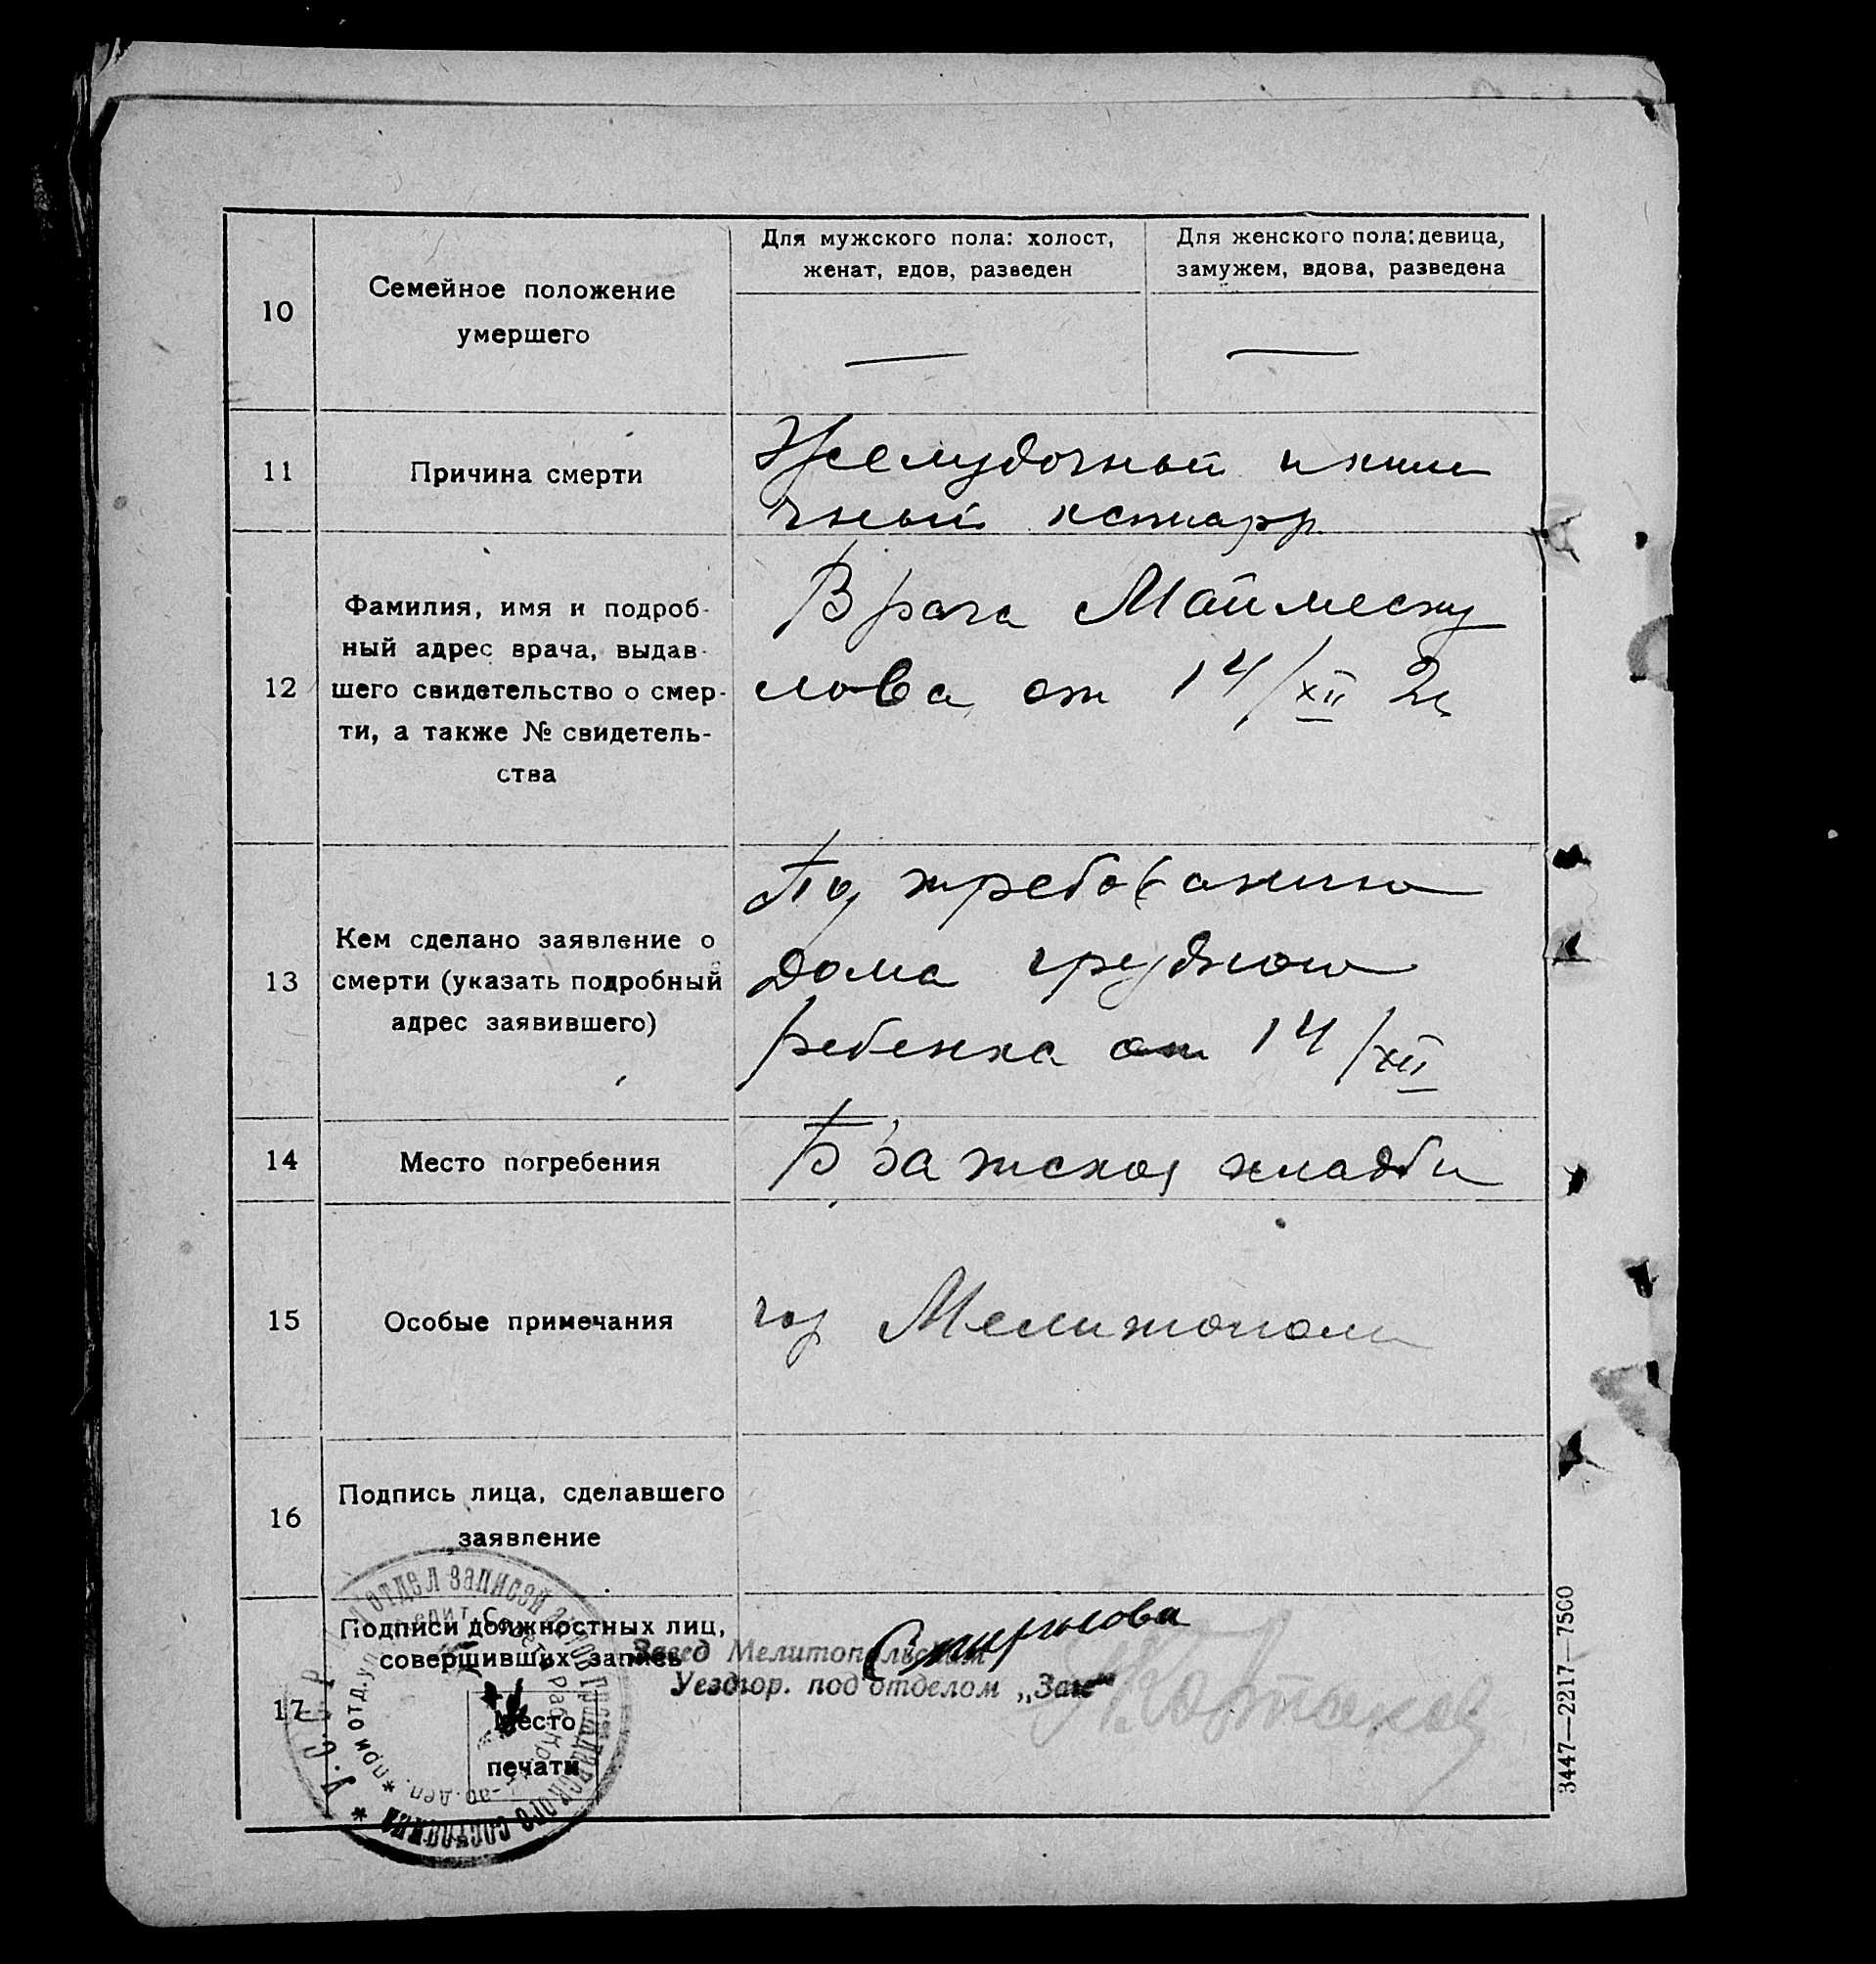 10
Семейное положение
умершего
Для мужского пола: холост,
женат, вдов, разведен
Для женского пола: девица,
замужем, вдова, разведена
—
—
11
Причина смерти
Желудочный и кише
чный катарр
12
Фамилия, имя и подроб-
ный адрес врача, выдав-
шего свидетельство о смер-
ти, а также № свидетель-
ства
Врача
лова от 14/XII
13
Кем сделано заявление о
смерти (указать подробный
адрес заявившего)
По требованию
Дома грудного
ребенка от 14/XII
14
Место погребения
кладби
15
Особые примечания
гор Мелитополь
16
Подпись лица, сделавшего
заявление
17
Подписи должностных лиц,
совершивших запись
Место
печати
Завед Мелитопольским
Уездгор. подотделом „Загс“
Смирнова
У.С.С.Р. * отдел записей актов гражданского состояния *
3447—2217—7500